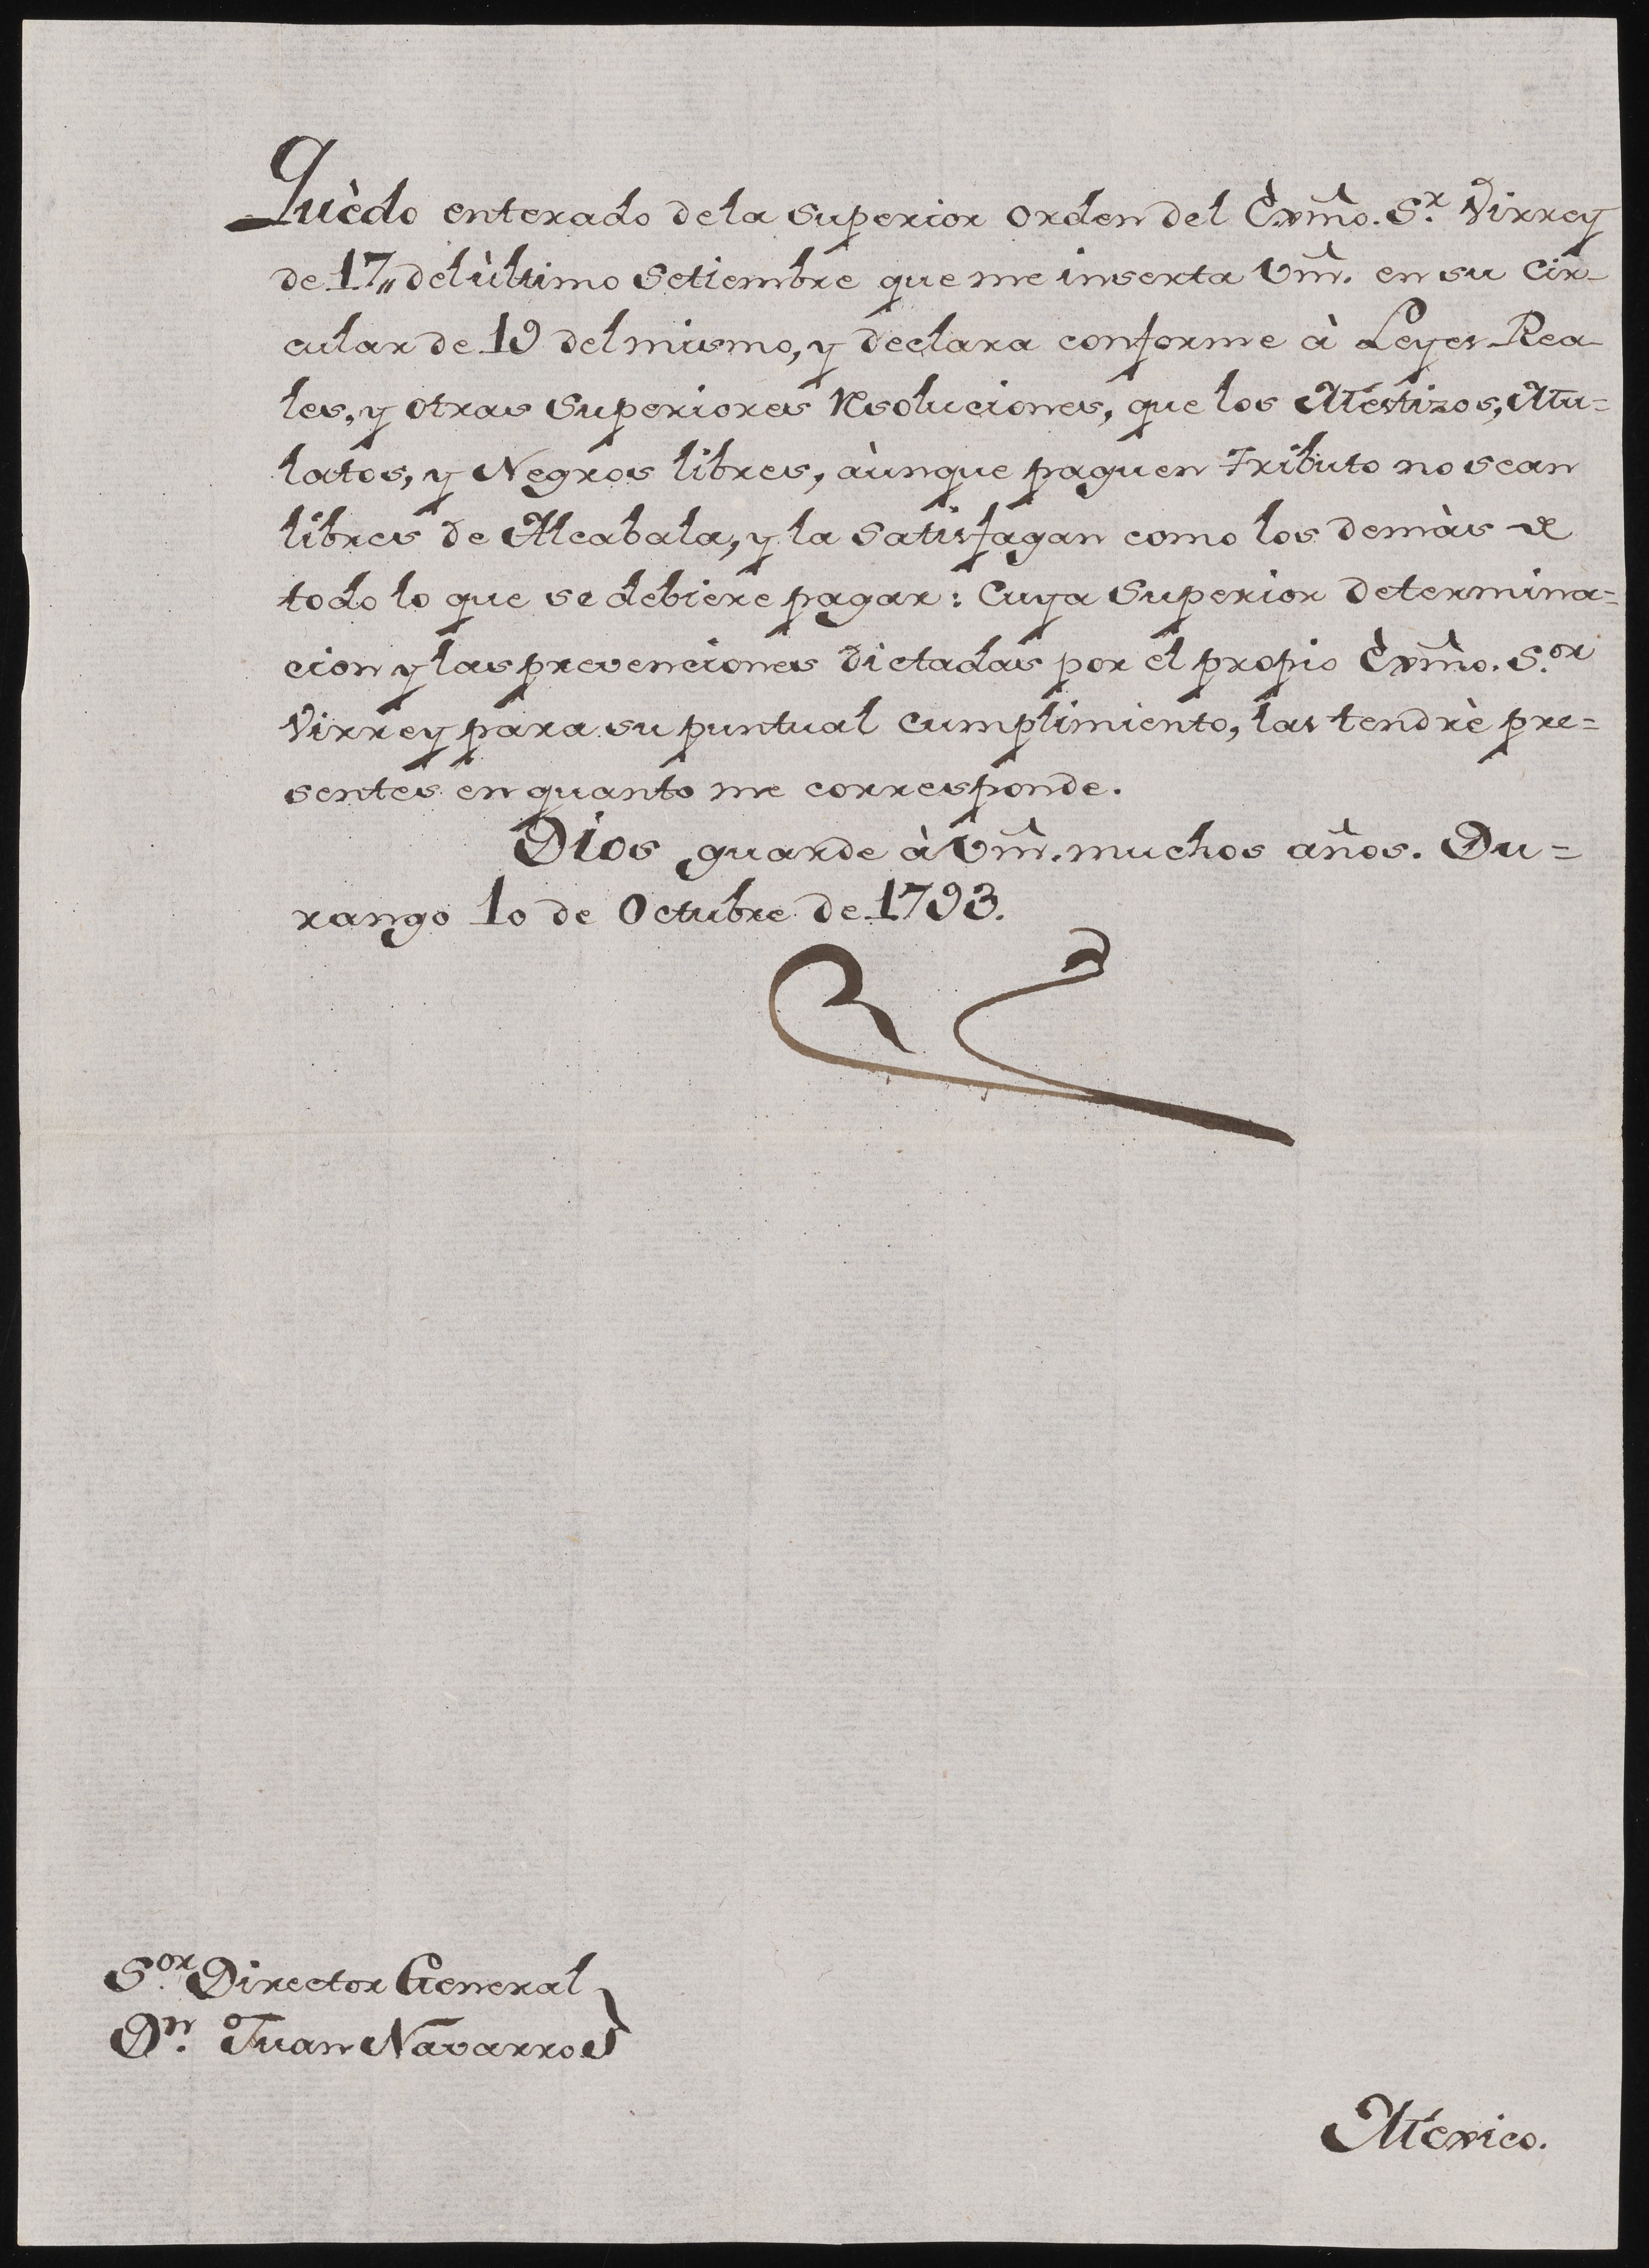 Quèdo enterado dela superior orden del Exm̃o. S.r Virrey
de 17,, del ùltimo Setiembre que me inserta Vm̃. en su Cir-
cular de 19 del mismo, y declara conforme à Leyes Rea-
les, y otras Superiores Resoluciones, que los Mestizos, Mu=
latos, y Negros libres, àunque paguen Tributo no sean
libres de Alcabala, y la Satisfagan como los demàs de
todo lo que se debiere pagar: Cuya Superior Determina=
cion y las prevenciones dictadas por el propio Exm̃o. S.or
Virrey para su puntual Cumplimiento, las tendrè pre=
sentes en quanto me corresponde.
Dios guarde à Vm̃. muchos años. Du=
rango 10 de Octubre de 1793.
S.or Director General
D.n Juan Navarro
Mexico.